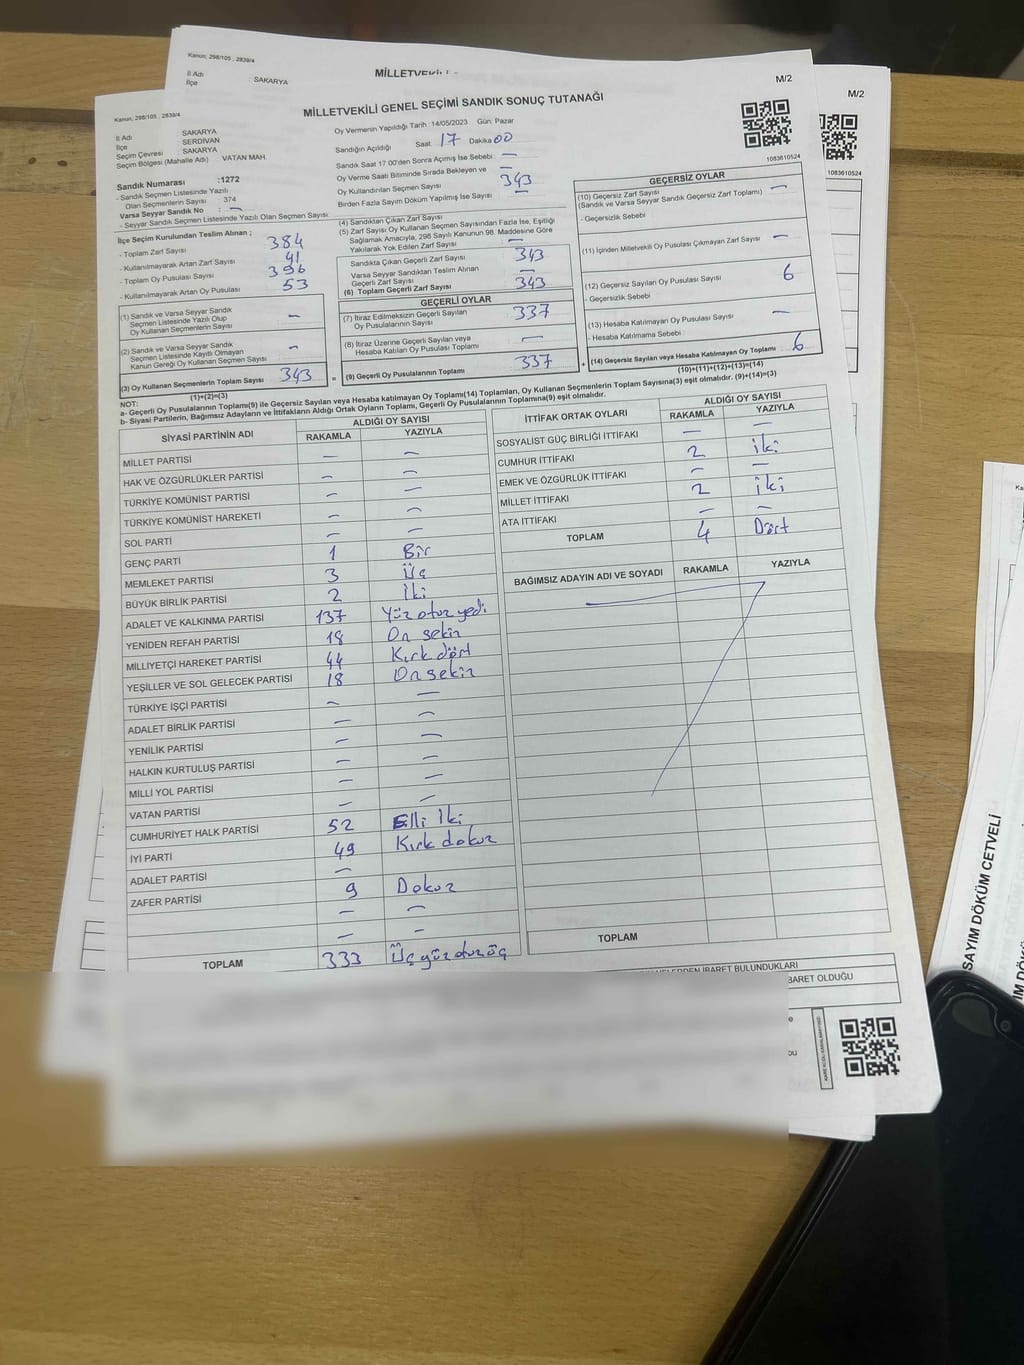 Kanun; 298/105 , 2839/4
İl Adı : SAKARYA
İlçe
MİLLETVEKİLİ
M/2
M/2
Kanun; 298/105 , 2839/4
MİLLETVEKİLİ GENEL SEÇİMİ SANDIK SONUÇ TUTANAĞI
1083610524
1083610524
İl Adı SAKARYA
İlçe SERDİVAN
Seçim Çevresi SAKARYA
Seçim Bölgesi (Mahalle Adı) VATAN MAH.
Oy Vermenin Yapıldığı Tarih :14/05/2023 Gün: Pazar
Sandığın Açıldığı Saat 17 Dakika 00
Sandık Saat 17:00'den Sonra Açımış İse Sebebi : —
Oy Verme Saati Bitiminde Sırada Bekleyen ve —
Oy Kullandırılan Seçmen Sayısı 343
Birden Fazla Sayım Döküm Yapılmış İse Sayısı : —
Sandık Numarası :1272
- Sandık Seçmen Listesinde Yazılı
Olan Seçmenlerin Sayısı : 374
Varsa Seyyar Sandık No : —
- Seyyar Sandık Seçmen Listesinde Yazılı Olan Seçmen Sayısı
İlçe Seçim Kurulundan Teslim Alınan ;
- Toplam Zarf Sayısı 384
- Kullanılmayarak Artan Zarf Sayısı 41
- Toplam Oy Pusulası Sayısı 396
- Kullanılmayarak Artan Oy Pusulası 53
(1) Sandık ve Varsa Seyyar Sandık
Seçmen Listesinde Yazılı Olup
Oy Kullanan Seçmenlerin Sayısı —
(2) Sandık ve Varsa Seyyar Sandık
Seçmen Listesinde Kayıtlı Olmayan
Kanun Gereği Oy Kullanan Seçmen Sayısı —
(3) Oy Kullanan Seçmenlerin Toplam Sayısı 343
(1)+(2)=(3)
(4) Sandıktan Çıkan Zarf Sayısı
(5) Zarf Sayısı Oy Kullanan Seçmen Sayısından Fazla İse, Eşitliği
Sağlamak Amacıyla, 298 Sayılı Kanunun 98. Maddesine Göre
Yakılarak Yok Edilen Zarf Sayısı —
Sandıkta Çıkan Geçerli Zarf Sayısı 343
Varsa Seyyar Sandıktan Teslim Alınan
Geçerli Zarf Sayısı —
(6) Toplam Geçerli Zarf Sayısı 343
GEÇERLİ OYLAR
(7) İtiraz Edilmeksizin Geçerli Sayılan
Oy Pusulalarının Sayısı 337
(8) İtiraz Üzerine Geçerli Sayılan veya
Hesaba Katılan Oy Pusulası Toplamı —
(9) Geçerli Oy Pusulalarının Toplamı 337
GEÇERSİZ OYLAR
(10) Geçersiz Zarf Sayısı
(Sandık ve Varsa Seyyar Sandık Geçersiz Zarf Toplamı) —
- Geçersizlik Sebebi
(11) İçinden Milletvekili Oy Pusulası Çıkmayan Zarf Sayısı —
(12) Geçersiz Sayılan Oy Pusulası Sayısı 6
- Geçersizlik Sebebi
(13) Hesaba Katılmayan Oy Pusulası Sayısı —
- Hesaba Katılmama Sebebi
(14) Geçersiz Sayılan veya Hesaba Katılmayan Oy Toplamı 6
(10)+(11)+(12)+(13)=(14)
NOT:
a- Geçerli Oy Pusulalarının Toplamı(9) ile Geçersiz Sayılan veya Hesaba katılmayan Oy Toplamı(14) Toplamları, Oy Kullanan Seçmenlerin Toplam Sayısına(3) eşit olmalıdır. (9)+(14)=(3)
b- Siyasi Partilerin, Bağımsız Adayların ve İttifakların Aldığı Ortak Oyların Toplamı, Geçerli Oy Pusulalarının Toplamına(9) eşit olmalıdır.
SİYASİ PARTİNİN ADI ALDIĞI OY SAYISI
RAKAMLA YAZIYLA
MİLLET PARTİSİ — —
HAK VE ÖZGÜRLÜKLER PARTİSİ — —
TÜRKİYE KOMÜNİST PARTİSİ — —
TÜRKİYE KOMÜNİST HAREKETİ — —
SOL PARTİ — —
GENÇ PARTİ 1 Bir
MEMLEKET PARTİSİ 3 Üç
BÜYÜK BİRLİK PARTİSİ 2 İki
ADALET VE KALKINMA PARTİSİ 137 Yüz otuz yedi
YENİDEN REFAH PARTİSİ 18 On sekiz
MİLLİYETÇİ HAREKET PARTİSİ 44 Kırk dört
YEŞİLLER VE SOL GELECEK PARTİSİ 18 On sekiz
TÜRKİYE İŞÇİ PARTİSİ — —
ADALET BİRLİK PARTİSİ — —
YENİLİK PARTİSİ — —
HALKIN KURTULUŞ PARTİSİ — —
MİLLİ YOL PARTİSİ — —
VATAN PARTİSİ — —
CUMHURİYET HALK PARTİSİ 52 Elli İki
İYİ PARTİ 49 Kırk dokuz
ADALET PARTİSİ —
ZAFER PARTİSİ 9 Dokuz
— —
— —
TOPLAM 333 Üç yüz otuz üç
İTTİFAK ORTAK OYLARI ALDIĞI OY SAYISI
RAKAMLA YAZIYLA
SOSYALİST GÜÇ BİRLİĞİ İTTİFAKI — —
CUMHUR İTTİFAKI 2 İki
EMEK VE ÖZGÜRLÜK İTTİFAKI — —
MİLLET İTTİFAKI 2 İki
ATA İTTİFAKI — —
TOPLAM 4 Dört
BAĞIMSIZ ADAYIN ADI VE SOYADI RAKAMLA YAZIYLA
TOPLAM
İBARET BULUNDUKLARI
BARET OLDUĞU
SAYIM DÖKÜM CETVELİ